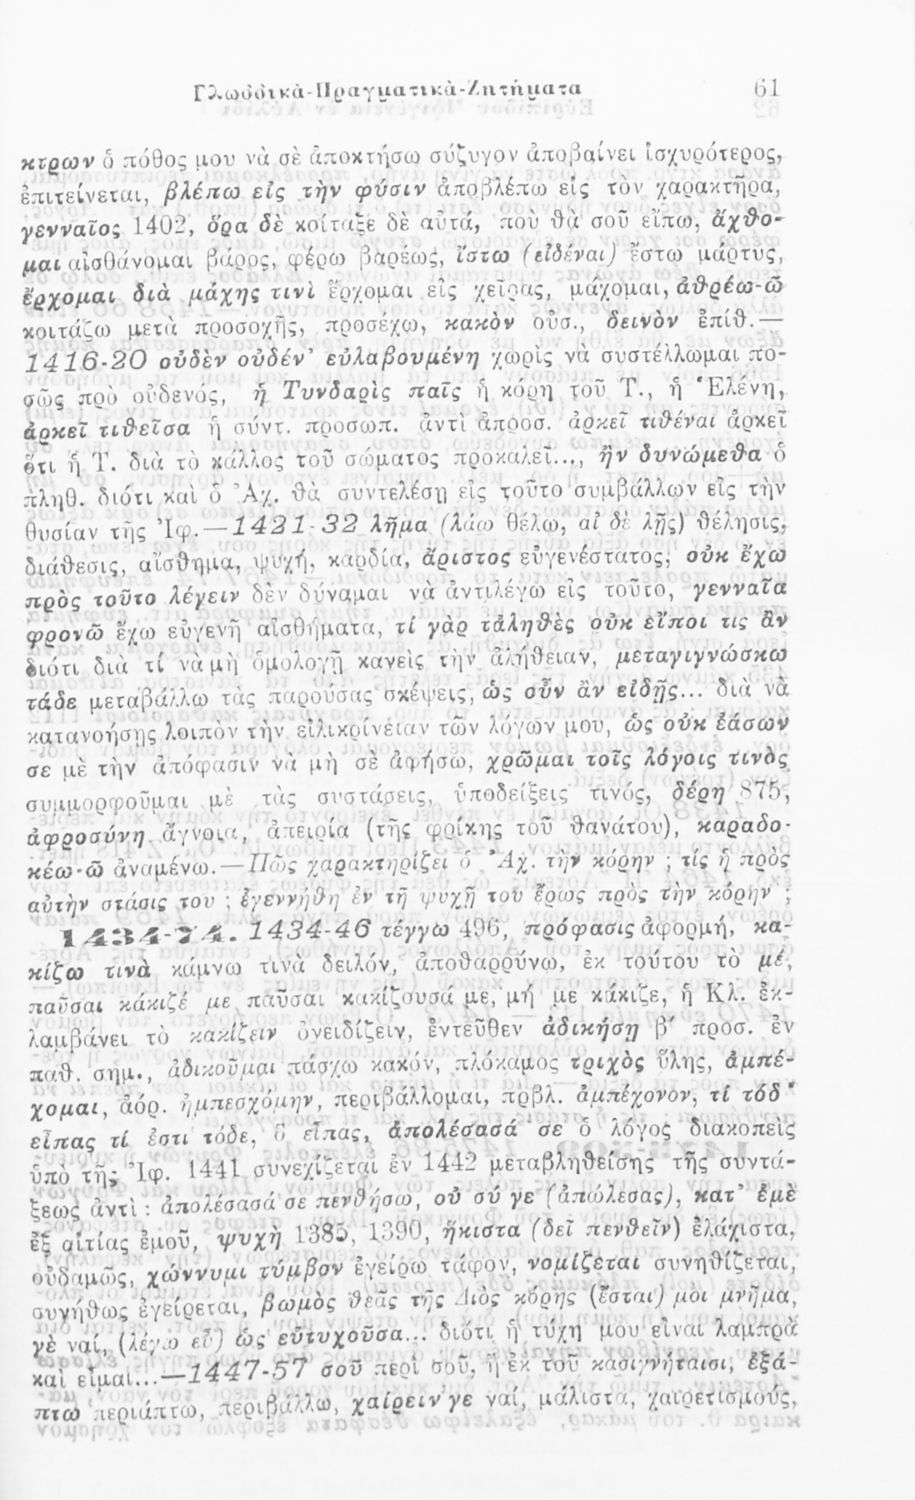 Γλωσσικὰ-Πραγματικὰ-Ζητήματα 61
κτρων ὁ πόθος μου νὰ σὲ ἀποκτήσω σύζυγον ἀποβαίνει ἰσχυρότερος,
ἐπιτείνεται, βλέπω εἰς τὴν φύσιν ἀποβλέπω εἰς τὸν χαρακτῆρα,
γενναῖος 1402, ὅρα δὲ κοίταξε δὲ αὐτά, ποὺ θὰ σοῦ εἴπω, ἄχθο-
μαι αἰσθάνομαι βάρος, φέρω βαρέως, ἴστω (εἰδέναι) ἔστω μάρτυς,
ἔρχομαι διὰ μάχης τινὶ ἔρχομαι εἰς χεῖρας, μάχομαι, ἀθρέω-ῶ
κοιτάζω μετὰ προσοχῆς, προσέχω, κακὸν οὐσ., δεινὸν ἐπίθ.—
1416-20 οὐδὲν οὐδέν’ εὐλαβουμένη χωρὶς νὰ συστέλλωμαι πο-
σῶς πρὸ οὐδενός, ἡ Τυνδαρὶς παῖς ἡ κόρη τοῦ Τ., ἡ Ἑλένη,
ἀρκεῖ τιθεῖσα ἡ σύντ. προσωπ. ἀντὶ ἀπροσ. ἀρκεῖ τιθέναι ἀρκεῖ
ὅτι ἡ Τ. διὰ τὸ κάλλος τοῦ σώματος προκαλεῖ..., ἢν δυνώμεθα ὁ
πληθ. διότι καὶ ὁ Ἀχ. θὰ συντελέσῃ εἰς τοῦτο συμβάλλων εἰς τὴν
θυσίαν τῆς Ἰφ.—1421-32 λῆμα (λάω θέλω, αἱ δὲ λῇς) θέλησις,
διάθεσις, αἴσθημα, ψυχή, καρδία, ἄριστος εὐγενέστατος, οὐκ ἔχω
πρὸς τοῦτο λέγειν δὲν δύναμαι νὰ ἀντιλέγω εἰς τοῦτο, γενναῖα
φρονῶ ἔχω εὐγενῆ αἰσθήματα, τί γὰρ τἀληθὲς οὐκ εἴποι τις ἂν
διότι διὰ τί νὰ μὴ ὁμολογῇ κανεὶς τὴν ἀλήθειαν, μεταγιγνώσκω
τάδε μεταβάλλω τὰς παρούσας σκέψεις, ὡς οὖν ἂν εἰδῇς... διὰ νὰ
κατανοήσῃς λοιπὸν τὴν εἰλικρίνειαν τῶν λόγων μου, ὡς οὐκ ἐάσων
σε μὲ τὴν ἀπόφασιν νὰ μὴ σὲ ἀφήσω, χρῶμαι τοῖς λόγοις τινὸς
συμμορφοῦμαι μὲ τὰς συστάσεις, ὑποδείξεις τινός, δέρη 875,
ἀφροσύνη ἄγνοια, ἀπειρία (τῆς φρίκης τοῦ θανάτου), καραδο-
κέω-ῶ ἀναμένω.—Πῶς χαρακτηρίζει ὁ Ἀχ. τὴν κόρην ; τίς ἡ πρὸς
αὐτὴν στάσις του ; ἐγεννήθη ἐν τῇ ψυχῇ του ἔρως πρὸς τὴν κόρην ;
1434-74. 1434-46 τέγγω 496, πρόφασις ἀφορμή, κα-
κίζω τινὰ κάμνω τινὰ δειλόν, ἀποθαρρύνω, ἐκ τούτου τὸ μέ,
παῦσαι κάκιζέ με παῦσαι κακίζουσά με, μή με κάκιζε, ἡ Κλ. ἐκ-
λαμβάνει τὸ κακίζειν ὀνειδίζειν, ἐντεῦθεν ἀδικήσῃ β′ προσ. ἐν
παθ. σημ., ἀδικοῦμαι πάσχω κακόν, πλόκαμος τριχὸς ὕλης, ἀμπέ-
χομαι, ἀόρ. ἠμπεσχόμην, περιβάλλομαι, πρβλ. ἀμπέχονον, τί τόδ’
εἶπας τί ἐστι τόδε, ὃ εἶπας, ἀπολέσασά σε ὁ λόγος διακοπεὶς
ὑπὸ τῆς Ἰφ. 1441 συνεχίζεται ἐν 1442 μεταβληθείσης τῆς συντά-
ξεως ἀντὶ : ἀπολέσασά σε πενθήσω, οὐ σύ γε (ἀπώλεσας), κατ’ ἐμὲ
ἐξ αἰτίας ἐμοῦ, ψυχὴ 1385, 1390, ἥκιστα (δεῖ πενθεῖν) ἐλάχιστα,
οὐδαμῶς, χώννυμι τύμβον ἐγείρω τάφον, νομίζεται συνηθίζεται,
συνήθως ἐγείρεται, βωμὸς θεᾶς τῆς Διὸς κόρης (ἔσται) μοι μνῆμα,
γὲ ναί, (λέγω εὖ) ὡς εὐτυχοῦσα... διότι ἡ τύχη μου εἶναι λαμπρὰ
καὶ εἶμαι...—1447-57 σοῦ περὶ σοῦ, ἢ ἐκ τοῦ κασιγνήταισι, ἐξά-
πτω περιάπτω, περιβάλλω, χαίρειν γε ναί, μάλιστα, χαιρετισμούς,